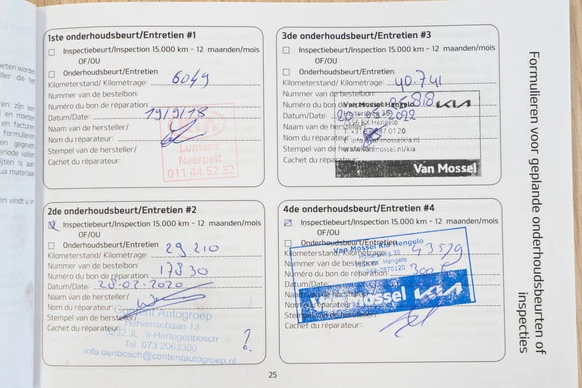 1ste onderhoudsbeurt/Entretien #1
Inspectiebeurt/Inspection 15.000 km - 12 maanden/mois
OF/OU
Onderhoudsbeurt/Entretien
Kilometerstand/ Kilométrage: 6049
Nummer van de bestelbon:
Numéro du bon de réparation:
Datum/Date: 19/9/18
Naam van de hersteller/
Nom du réparateur:
Stempel van de hersteller/
Cachet du réparateur:
Neerpelt
011 44 52 32
2de onderhoudsbeurt/Entretien #2
Inspectiebeurt/Inspection 15.000 km - 12 maanden/mois
OF/OU
Onderhoudsbeurt/Entretien
Kilometerstand/ Kilométrage: 29 210
Nummer van de bestelbon:
Numéro du bon de réparation: 17830
Datum/Date: 28-02-2020
Naam van de hersteller/
Nom du réparateur:
Stempel van de hersteller/
Cachet du réparateur:
Content Autogroep
Hervensebaan 13
's-Hertogenbosch
Tel. 073 2063300
info.denbosch@contentautogroep.nl
?
3de onderhoudsbeurt/Entretien #3
Inspectiebeurt/Inspection 15.000 km - 12 maanden/mois
OF/OU
Onderhoudsbeurt/Entretien
Kilometerstand/ Kilométrage: 40.741
Nummer van de bestelbon:
Numéro du bon de
Datum/Date: 2022
Naam van de
Nom du réparateur:
Stempel van de
Cachet du réparateur:
Van Mossel Hengelo
KIA
Van Mossel
4de onderhoudsbeurt/Entretien #4
Inspectiebeurt/Inspection 15.000 km - 12 maanden/mois
OF/OU
Onderhoudsbeurt/Entretien
Kilometerstand/ Kilométrage: 43579
Nummer van de bestelbon:
Numéro du bon de réparation:
Datum/Date:
Naam van de
Nom du
Stempel van de
Cachet du réparateur:
Van Mossel Kia Hengelo
Hengelo
Mossel KIA
Formulieren voor geplande onderhoudsbeurten of
inspecties
25